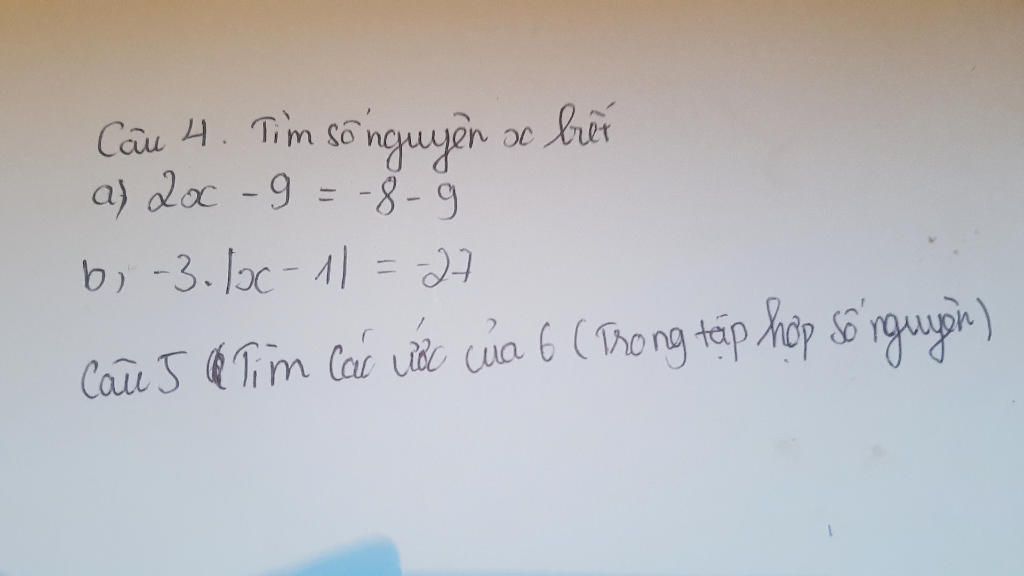 Câu 4. Tìm số nguyên x biết
a) 2x - 9 = -8 - 9
b, -3.|x - 1| = -27
Câu 5 (Tìm các ước của 6 (Trong tập hợp số nguyên)